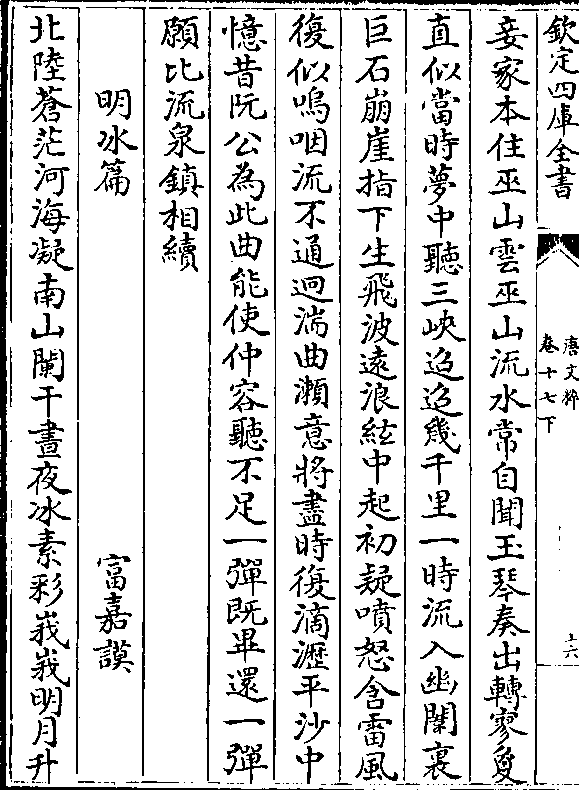 欽定四庫全書
唐文粹
卷十七下
十六
妾家本住巫山雲巫山流水常自聞玉琴奏出轉寥夐
直似當時夢中聽三峽迢迢幾千里一時流入幽閨裏
巨石崩崖指下生飛波遠浪絃中起初疑噴怒含雷風
復似嗚咽流不通迴湍曲瀨意將盡時復滴瀝平沙中
憶昔阮公為此曲能使仲容聽不足一彈既畢還一彈
願比流泉鎮相續
明冰篇
富嘉謨
北陸蒼茫河海凝南山闌干晝夜冰素彩峩峩明月升